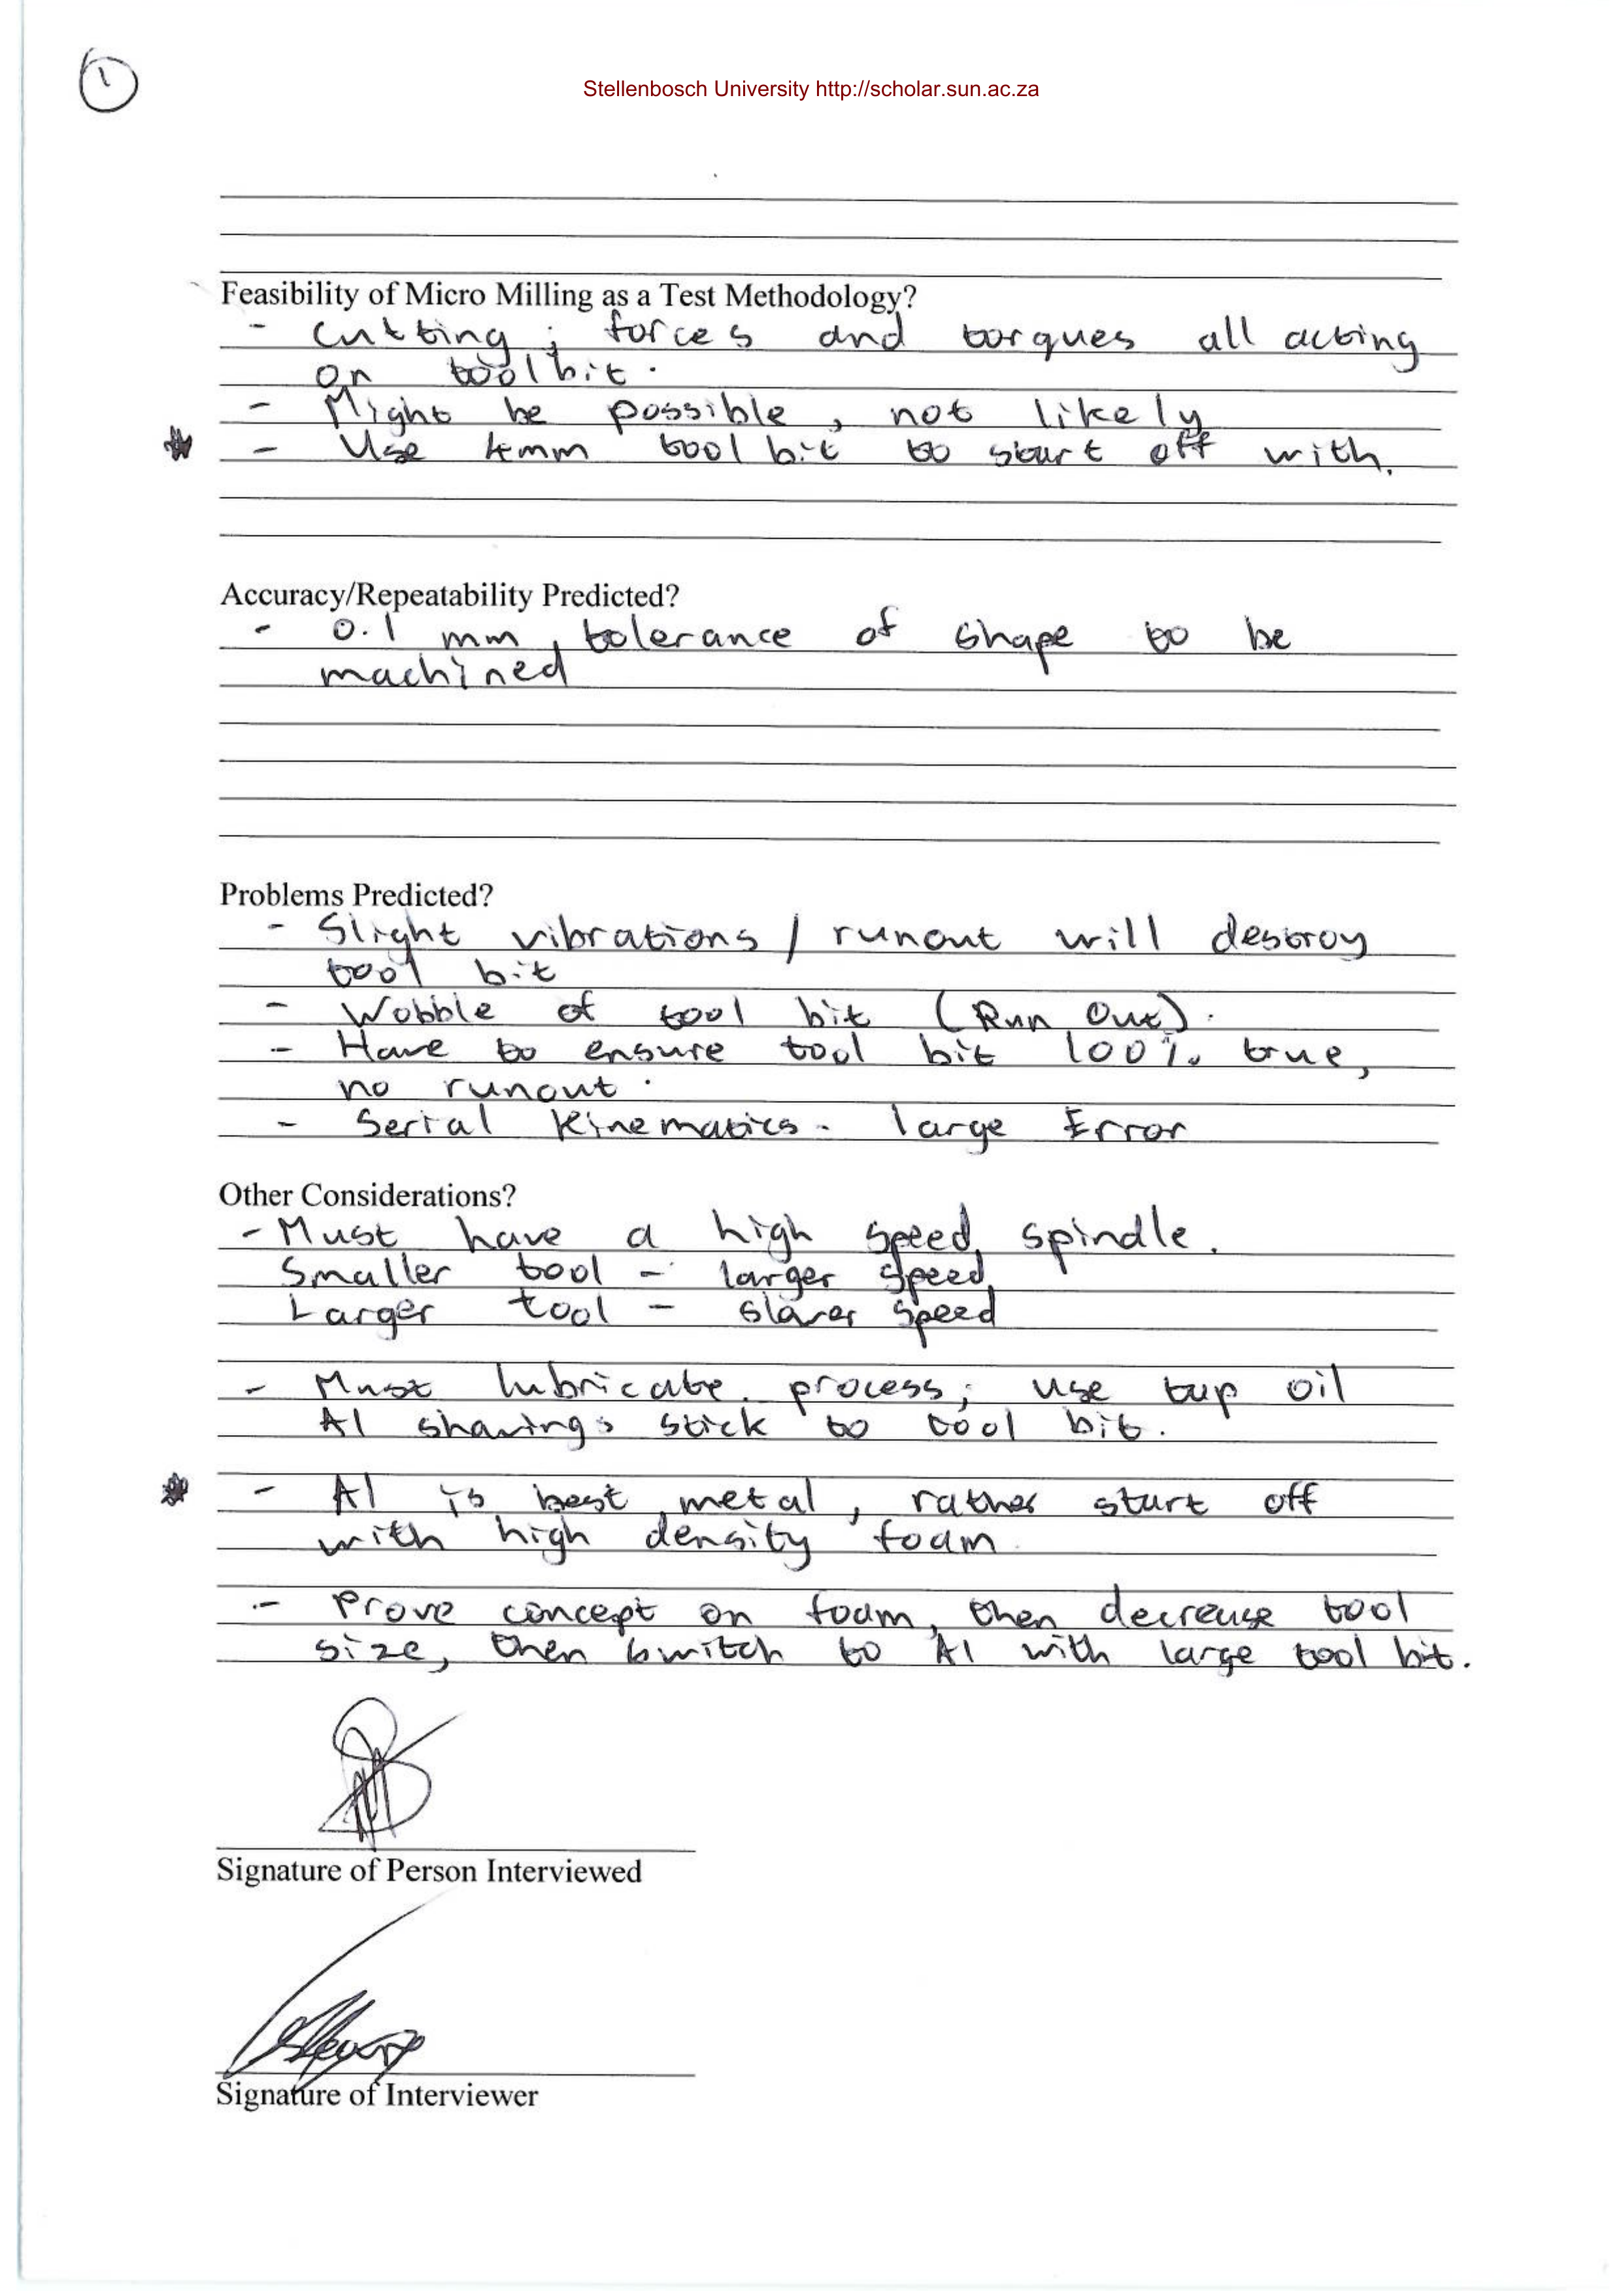 1
Stellenbosch University http://scholar.sun.ac.za
Feasibility of Micro Milling as a Test Methodology?
- Cutting ; forces and torques all acting
on toolbit.
- Might be possible, not likely
- Use 4mm tool bit to start off with.
Accuracy/Repeatability Predicted?
- 0.1 mm tolerance of shape to be
machined
Problems Predicted?
- Slight vibrations / runout will destroy
tool bit
- Wobble of tool bit (Run Out).
- Have to ensure tool bit 100% true,
no runout.
- Serial Kinematics - large Error
Other Considerations?
- Must have a high speed spindle.
Smaller tool - larger speed
Larger tool - slower speed
- Must lubricate process; use tap oil
Al shavings stick to tool bit.
- Al is best metal, rather start off
with high density foam
- Prove concept on foam, then decrease tool
size, then switch to Al with large tool bit.
Signature of Person Interviewed
Signature of Interviewer